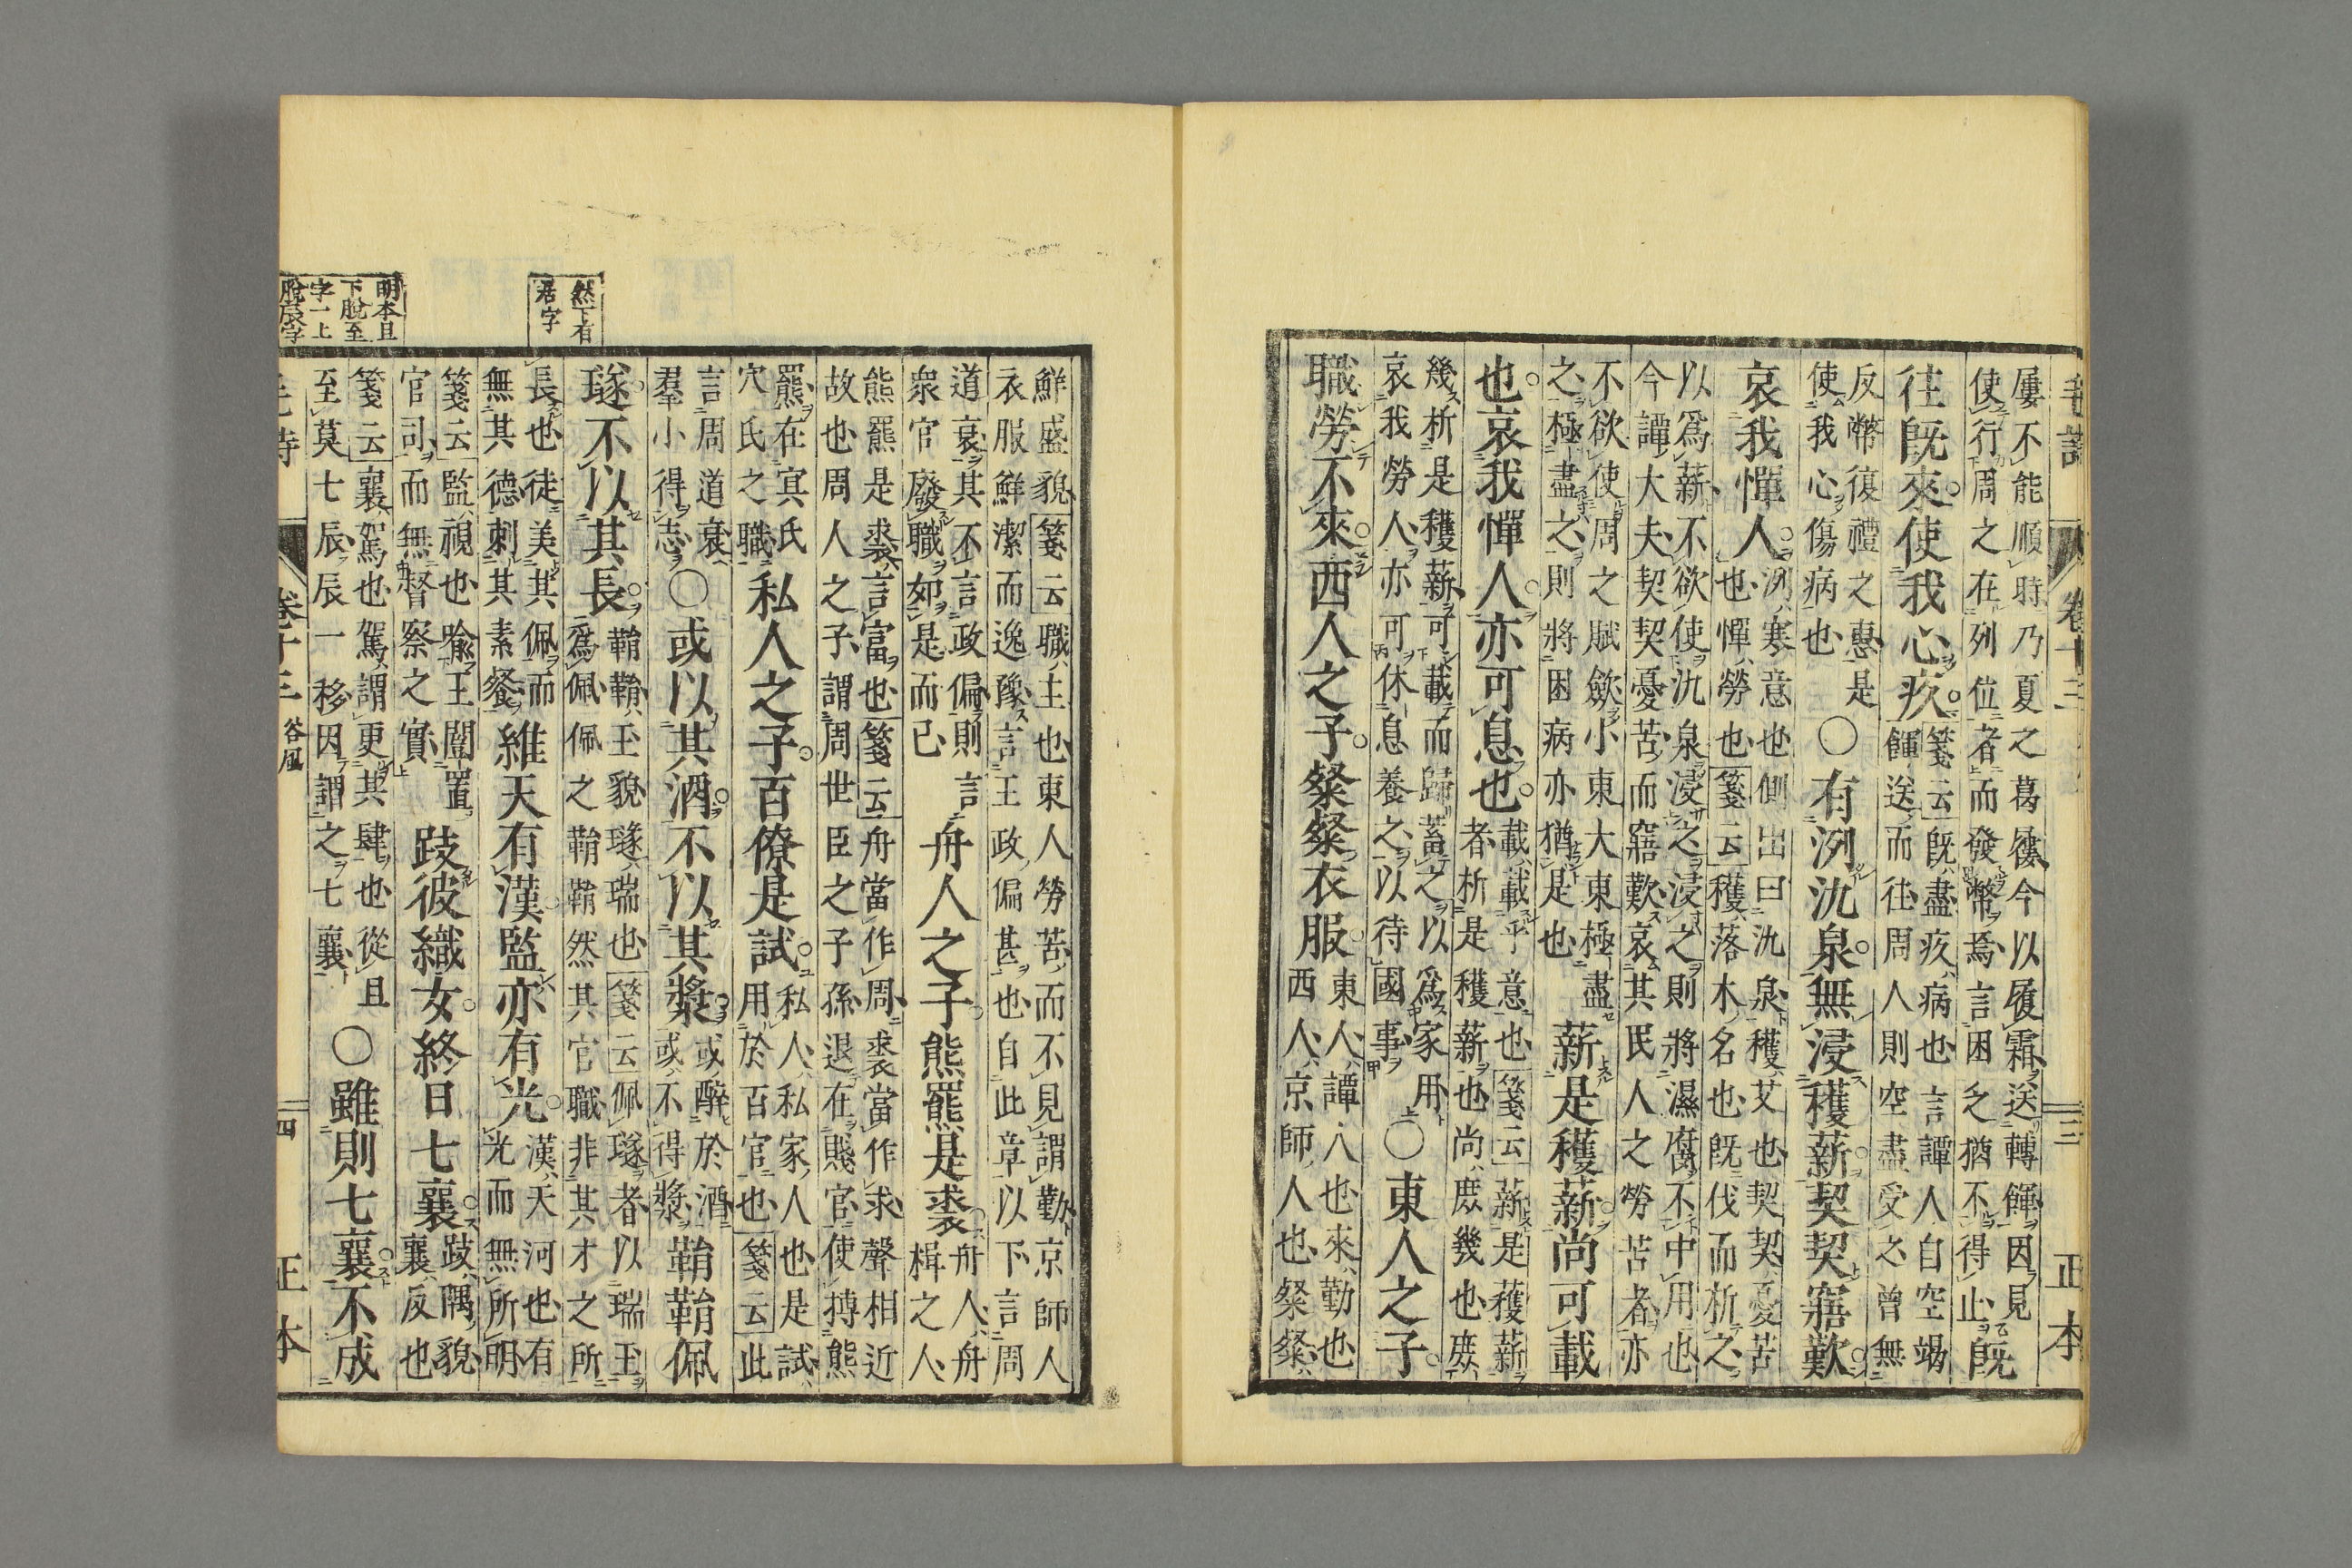 毛詩 卷十三 三 正本
屨不能順時乃夏之葛屨今以履霜送轉餫因見
使行周之在列位者而發幣焉言困乏猶不得止既
往既來使我心疚箋云既盡疚病也言譚人自空竭
餫送而往周人則空盡受之曾無
反幣復禮之惠是
使我心傷病也○有洌氿泉無浸穫薪契契寤歎
哀我憚人洌寒意也側出曰氿泉穫艾也契契憂苦
也憚勞也箋云穫落木名也既伐而析之
以爲薪不欲使氿泉浸之浸之則將濕腐不中用也
今譚大夫契契憂苦而寤歎哀其民人之勞苦者亦
不欲使周之賦斂小東大東極盡
之極盡之則將困病亦猶是也薪是穫薪尚可載
也哀我憚人亦可息也載載乎意也箋云薪是穫薪
者析是穫薪也尚庶幾也庶
幾析是穫薪可載而歸蓄之以爲家用
哀我勞人亦可休息養之以待國事○東人之子
職勞不來西人之子粲粲衣服東人譚人也來勤也
西人京師人也粲粲
鮮盛貌箋云職主也東人勞苦而不見謂勤京師人
衣服鮮潔而逸豫言王政偏甚也自此章以下言周
道衰其不言政偏則言
衆官廢職如是而已舟人之子熊羆是裘舟人舟
楫之人
熊羆是裘言富也箋云舟當作周裘當作求聲相近
故也周人之子謂周世臣之子孫退在賤官使搏熊
羆在冥氏
穴氏之職私人之子百僚是試私人私家人也是試
用於百官也箋云此
言周道衰
羣小得志○或以其酒不以其漿或醉於酒
或不得漿鞙鞙佩
璲不以其長鞙鞙玉貌璲瑞也箋云佩璲者以瑞玉
爲佩佩之鞙鞙然其官職非其才之所
長也徒美其佩而
無其德刺其素餐維天有漢監亦有光漢天河也有
光而無所明
箋云監視也喻王闓置
官司而無督察之實跂彼織女終日七襄跂隅貌
襄反也
箋云襄駕也駕謂更其肆也從且
至莫七辰辰一移因謂之七襄○雖則七襄不成
毛詩 卷十三 谷風 四 正本
然下有
居字
明本且
下脫至
字一上
脫辰字